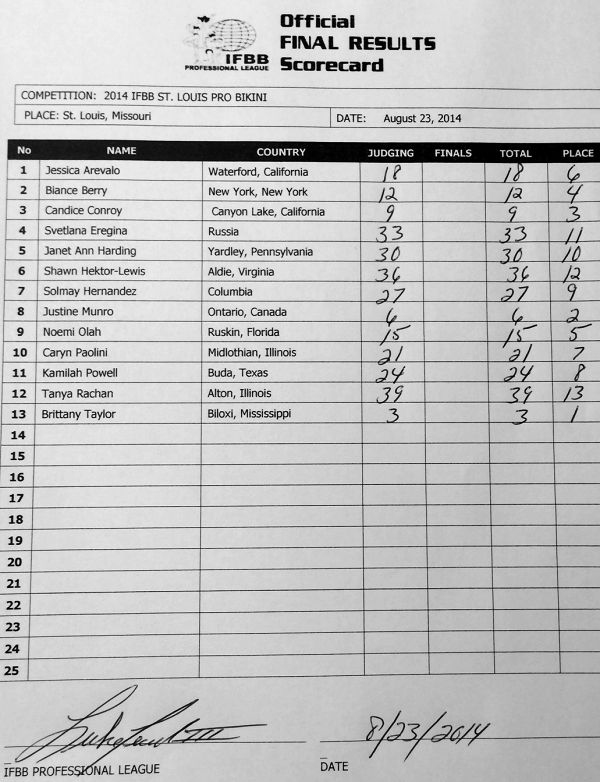 Official
FINAL RESULTS
Scorecard
IFBB
PROFESSIONAL LEAGUE
COMPETITION: 2014 IFBB ST. LOUIS PRO BIKINI
PLACE: St. Louis, Missouri DATE: August 23, 2014
No NAME COUNTRY JUDGING FINALS TOTAL PLACE
1 Jessica Arevalo Waterford, California 18 18 6
2 Biance Berry New York, New York 12 12 4
3 Candice Conroy Canyon Lake, California 9 9 3
4 Svetlana Eregina Russia 33 33 11
5 Janet Ann Harding Yardley, Pennsylvania 30 30 10
6 Shawn Hektor-Lewis Aldie, Virginia 36 36 12
7 Solmay Hernandez Columbia 27 27 9
8 Justine Munro Ontario, Canada 6 6 2
9 Noemi Olah Ruskin, Florida 15 15 5
10 Caryn Paolini Midlothian, Illinois 21 21 7
11 Kamilah Powell Buda, Texas 24 24 8
12 Tanya Rachan Alton, Illinois 39 39 13
13 Brittany Taylor Biloxi, Mississippi 3 3 1
14
15
16
17
18
19
20
21
22
23
24
25
8/23/2014
IFBB PROFESSIONAL LEAGUE DATE